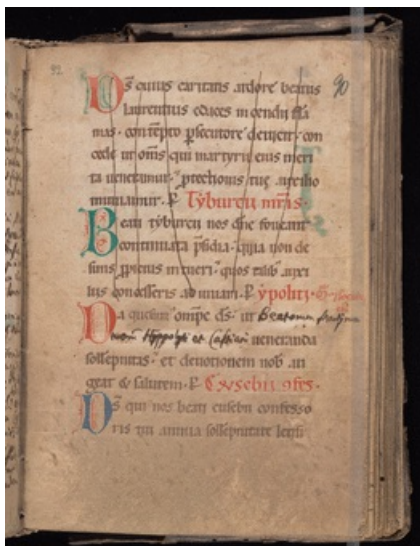 92
90
Ds cuius caritatis ardore beatus
laurentius edaces incendii fla
mas · contēpto psecutore deuicit · con
cede ut oms qui martyrii eius meri
ta uenerantur · ptectionis tue auxilio
muniantur. P Tyburcii mris.
Beati tyburcii nos dne foueant
continuata psidia · quia non de
sinis ppitius intueri · quos talib auxi
liis concesseris adiuuari. P ypoliti.
Da quesum omps ds · ut Beatorum
Hyppolyti et Cassiani ueneranda
sollepnitas · et deuotionem nob au
geat & salutem. P Eusebii 9fes.
Ds qui nos beati eusebii confesso
ris tui annua sollepnitate letifi